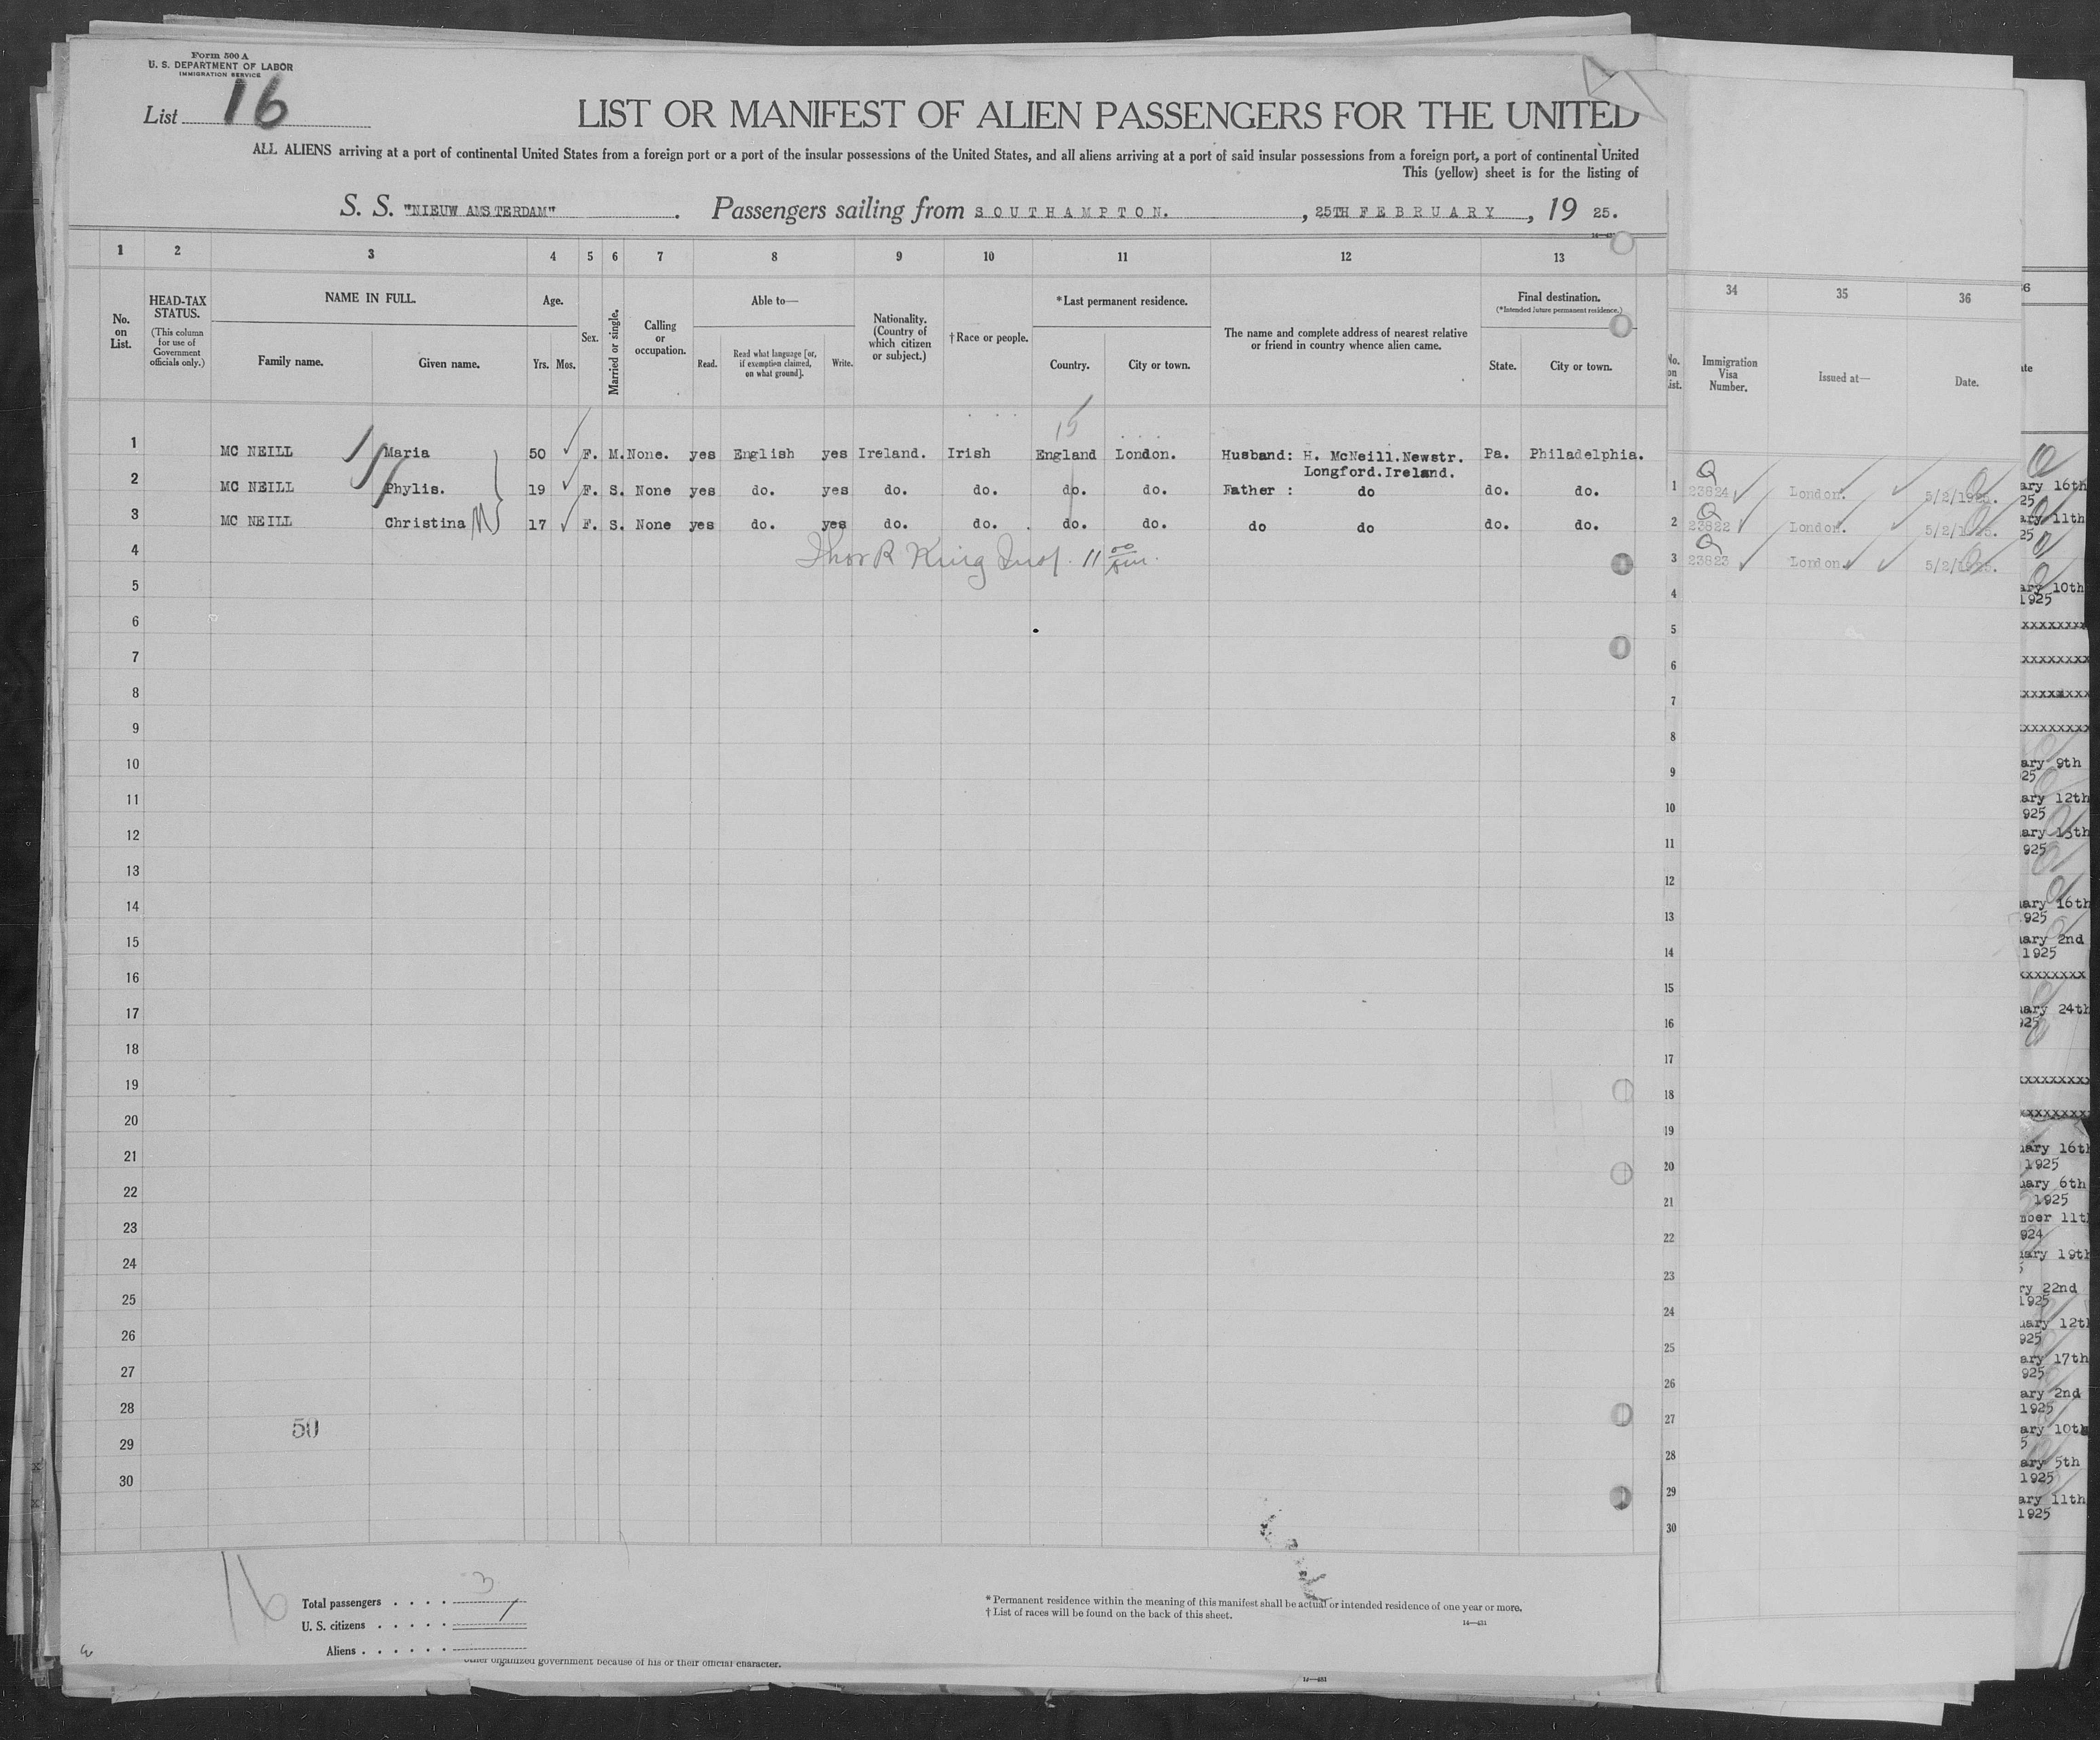 Form 500 A
U. S. DEPARTMENT OF LABOR
IMMIGRATION SERVICE
List 16
LIST OR MANIFEST OF ALIEN PASSENGERS FOR THE UNITED
ALL ALIENS arriving at a port of continental United States from a foreign port or a port of the insular possessions of the United States, and all aliens arriving at a port of said insular possessions from a foreign port, a port of continental United
This (yellow) sheet is for the listing of
S. S. "NIEUW AMSTERDAM" . Passengers sailing from SOUTHAMPTON. , 25TH FEBRUARY , 19 25.
1 2 3 4 5 6 7 8 9 10 11 12 13
34 35 36
No. on List.
HEAD-TAX STATUS.
(This column for use of Government officials only.)
NAME IN FULL.
Family name. Given name.
Age.
Yrs. Mos.
Sex.
Married or single.
Calling or occupation.
Able to—
Read. Read what language [or, if exemption claimed, on what ground]. Write.
Nationality. (Country of which citizen or subject.)
†Race or people.
*Last permanent residence.
Country. City or town.
The name and complete address of nearest relative or friend in country whence alien came.
Final destination.
(*Intended future permanent residence.)
State. City or town.
No. on List.
Immigration Visa Number.
Issued at—
Date.
15
1 MC NEILL Maria 50 F. M. None. yes English yes Ireland. Irish England London. Husband: H. McNeill.Newstr. Pa. Philadelphia.
Longford.Ireland.
2 MC NEILL Phylis. 19 F. S. None yes do. yes do. do. do. do. Father : do do. do.
3 MC NEILL Christina 17 F. S. None yes do. yes do. do. do. do. do do do. do.
1 23824 London. 5/2/1925.
2 23822 London. 5/2/1925.
3 23823 London 5/2/1925.
4 King 11 00
5
6
7
8
9
10
11
12
13
14
15
16
17
18
19
20
21
22
23
24
25
26
27
28
50
29
30
4
5
6
7
8
9
10
11
12
13
14
15
16
17
18
19
20
21
22
23
24
25
26
27
28
29
30
ary 16th
25
ary 11th
25
ary 10th
1925
xxxxxxxx
xxxxxxxx
xxxxxxxx
xxxxxxxx
ary 9th
25
ary 12th
925
ary 13th
925
uary 16th
925
uary 2nd
1925
xxxxxxxx
uary 24th
925
xxxxxxxx
xxxxxxxx
uary 16th
1925
uary 6th
1925
mber 11th
924
uary 19th
5
ry 22nd
1925
uary 12th
925
ary 17th
925
ary 2nd
1925
ary 10th
5
ary 5th
1925
ary 11th
1925
16
Total passengers . . . . 3
U. S. citizens . . . . .
Aliens . . . . . .
* Permanent residence within the meaning of this manifest shall be actual or intended residence of one year or more.
† List of races will be found on the back of this sheet.
14—431
other organized government because of his or their official character.
14—431